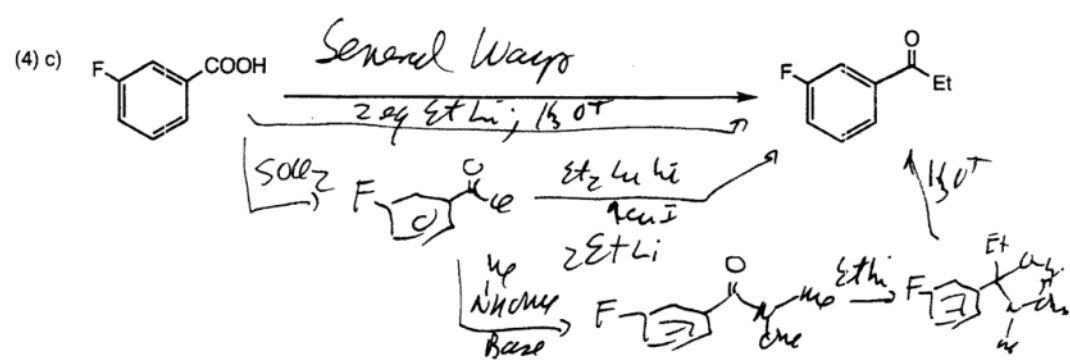 (4) c)
F
COOH
Several Ways
2 eq EtLi; H3O+
O
F
Et
SOCl2
O
F
Cl
Et2CuLi
↑CuI
2EtLi
H3O+
Me
NHOMe
Base
O
F
N
Me
OMe
EtLi
Et
F
OLi
N
Me